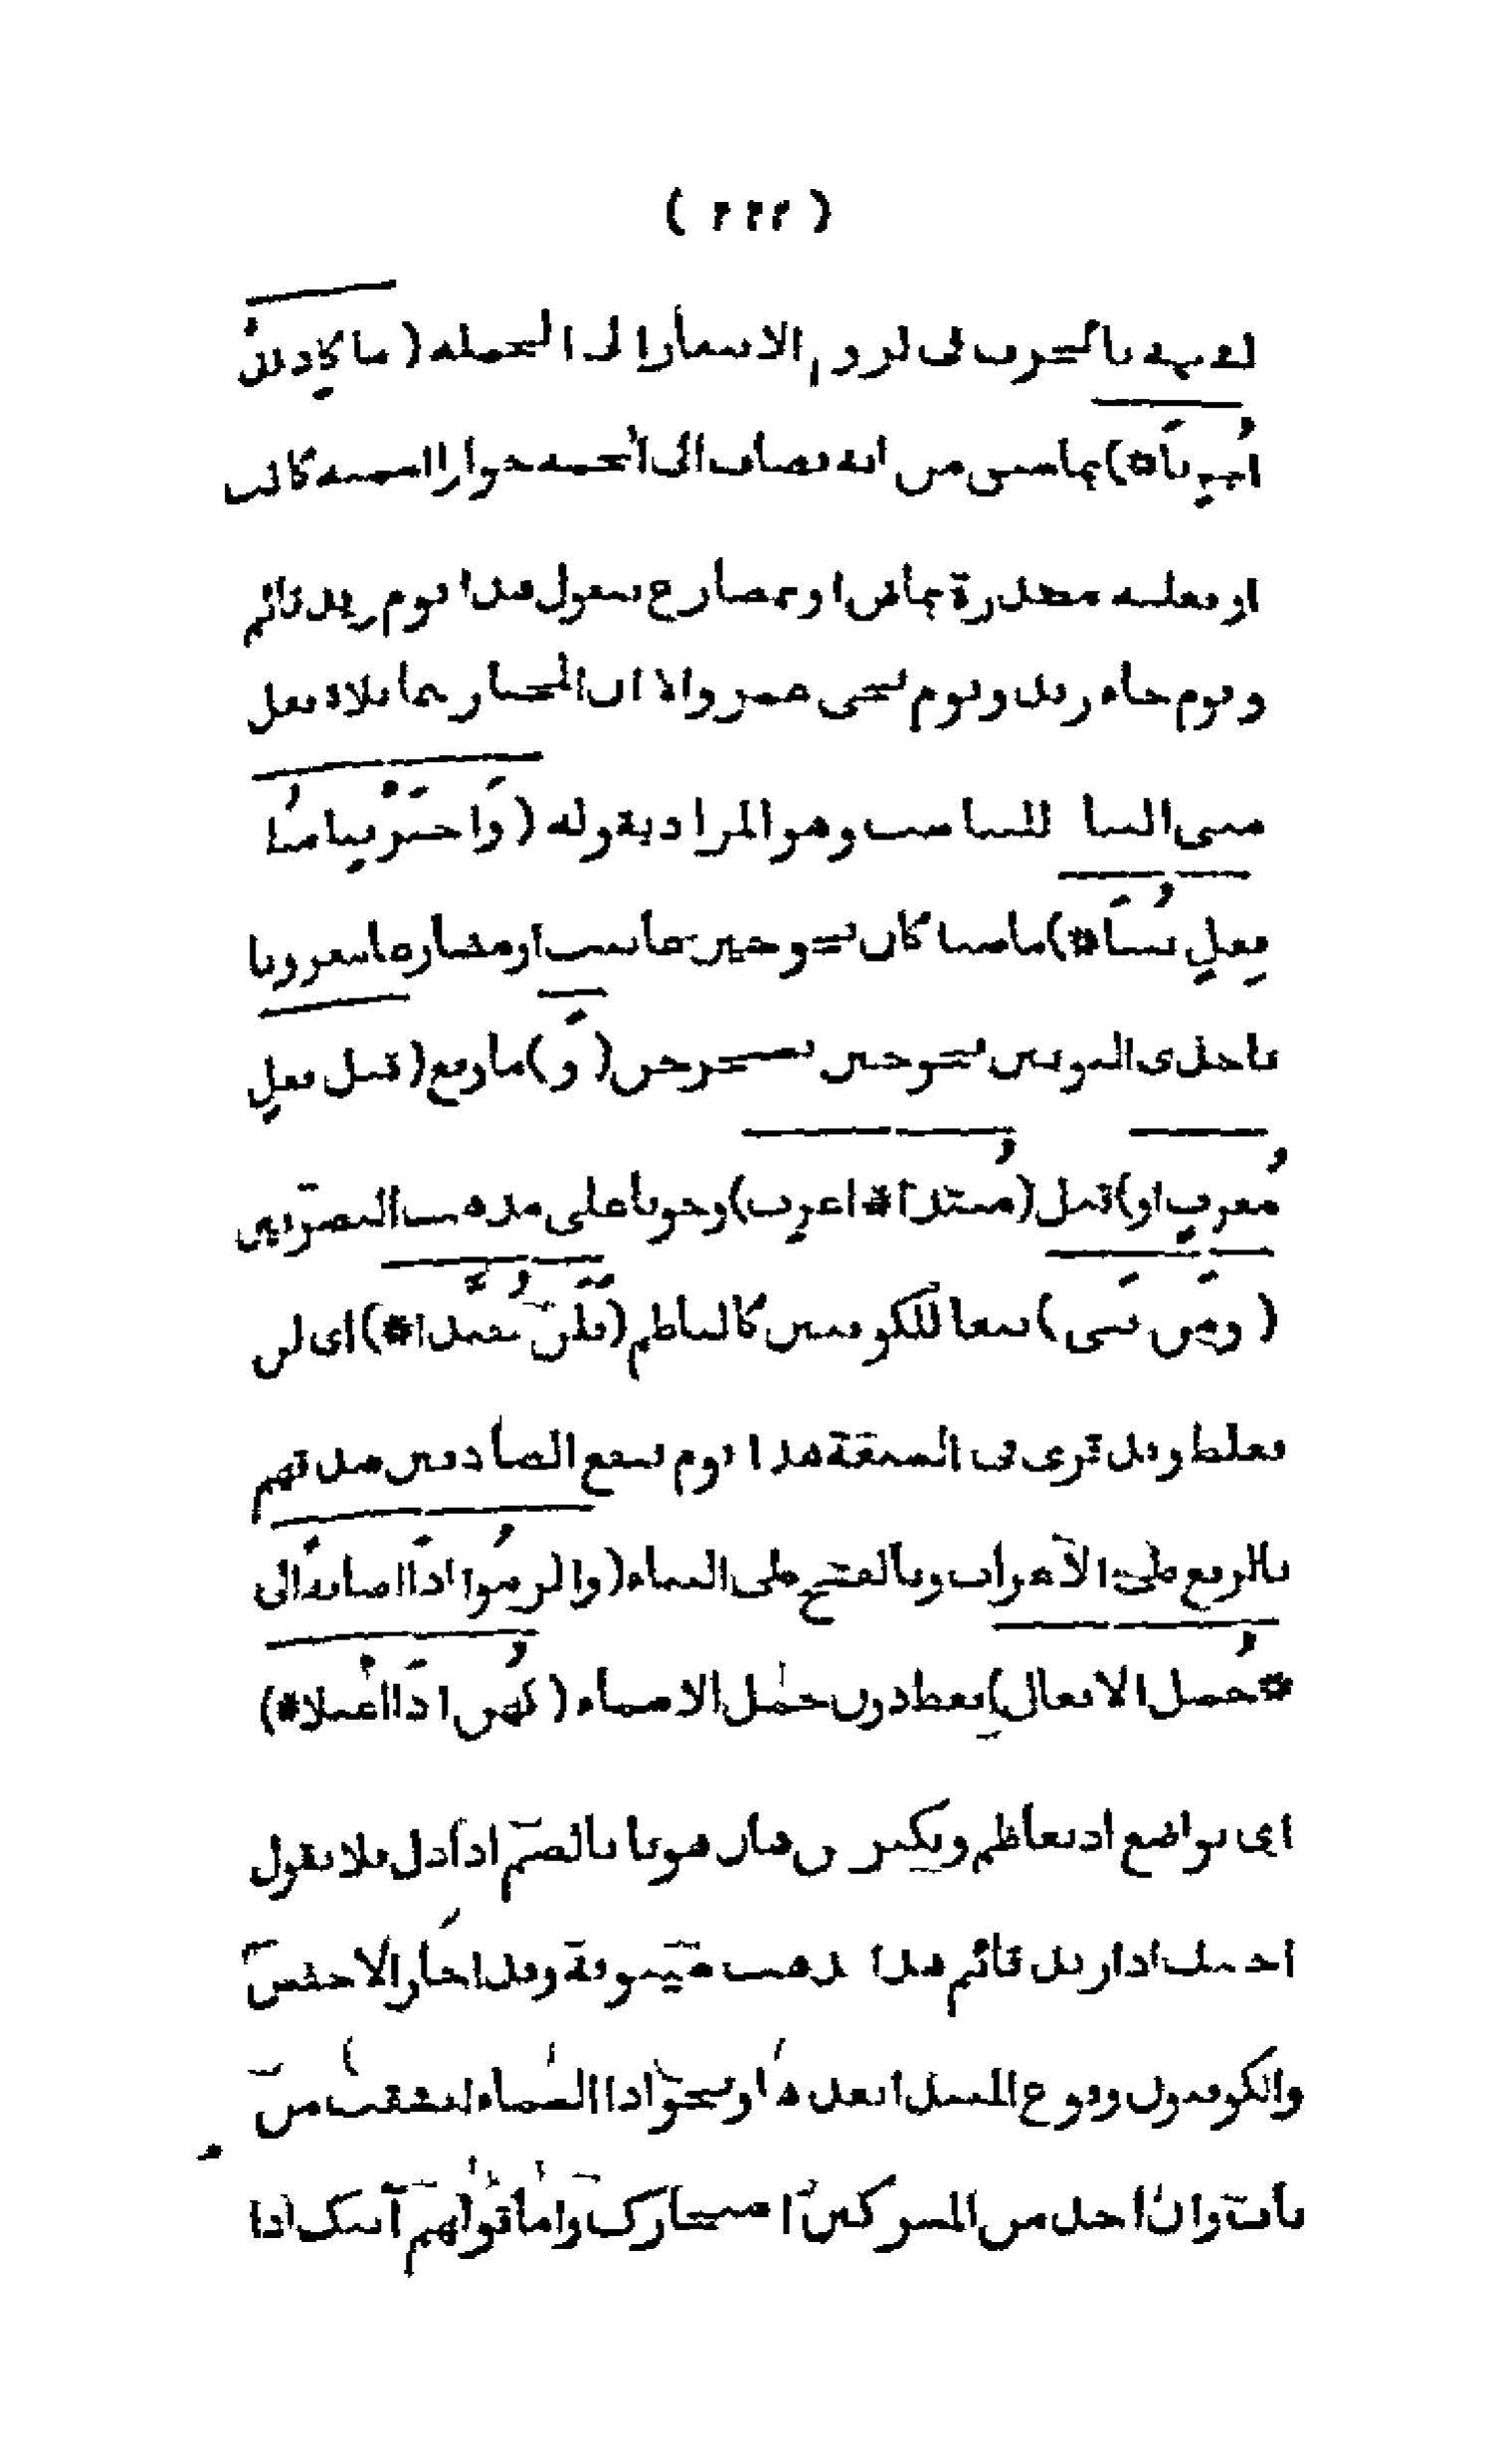 ( ٢٢٢ )
لشبهه بالحرف فى لزوم الافتقار الى الجملة ( ما كَاِذ قَدْ
اُجرِيَا * ) بما سبق من انه يضاف الى الجملة جوازا اسمية كانت
او فعلية مصدرة بماض او بمضارع تقول هذا يوم زيد قائم
ويوم جاء زيد ويوم يجى عمرو الا ان المختار فيما تلاه فعل
مبنى البنا للتناسب وهو المراد بقوله ( وَاختَرْ بِنا متلُوّ
فِعلٍ بُنِيَا * ) ماضيا كان نحو حين عاتبت او مضارعا مقرونا
باحدى النونين نحو حين يستخرجن ( وَ ) ما وقع ( قبل فعلٍ
مُعرَبٍ او ) قبل ( مُبتدا * اعرِب ) وجوبا على مذهب البصريين
( ومَن بَنى ) تبعا للكوفيين كالناظم ( فلَنْ يُفَنَّدا * ) اى لن
يغلط وقد قرئ فى السبعة هذا يوم ينفع الصادقين صدقهم
بالرفع على الاعراب وبالفتح على البناء ( والزمُوا اذَا اضافةً الى
* جُمَل الافعالِ ) فقط دون جمل الاسماء ( كهُن اذَا اعْتلا * )
اى تواضع اذ تعاظم وتكبر من هان هونا بالضم اذا ذل فلا تقول
اجيئك اذا زيد قائم هذا مذهب سيبويه وقد اجاز الاخفش
والكوفيون وقوع المبتدا بعدها ونحو اذا السماء انشقت من
باب وان احد من المشركين استجارك واما قولهم آتيك اذا